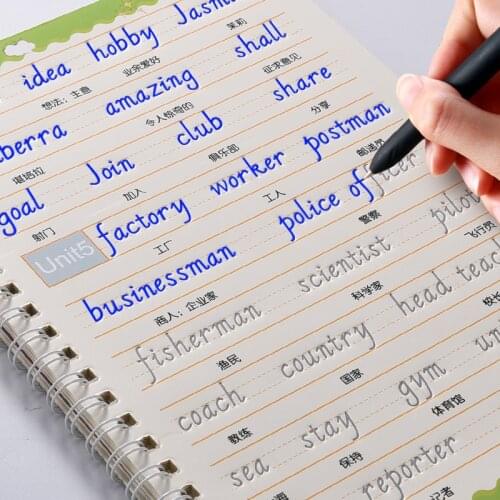 idea hobby Jasm
想法；主意 业余爱好 茉莉
berra amazing shall
堪培拉 令人惊奇的 征求意见
goal Join club share
射门 加入 俱乐部 分享
Unit5 factory worker postman
工厂 工人 邮递员
businessman police officer
商人；企业家 警察
fisherman scientist pilot
渔民 科学家 飞行员
coach country head teac
教练 国家 校长
sea stay gym un
海 保持 体育馆
reporter
记者